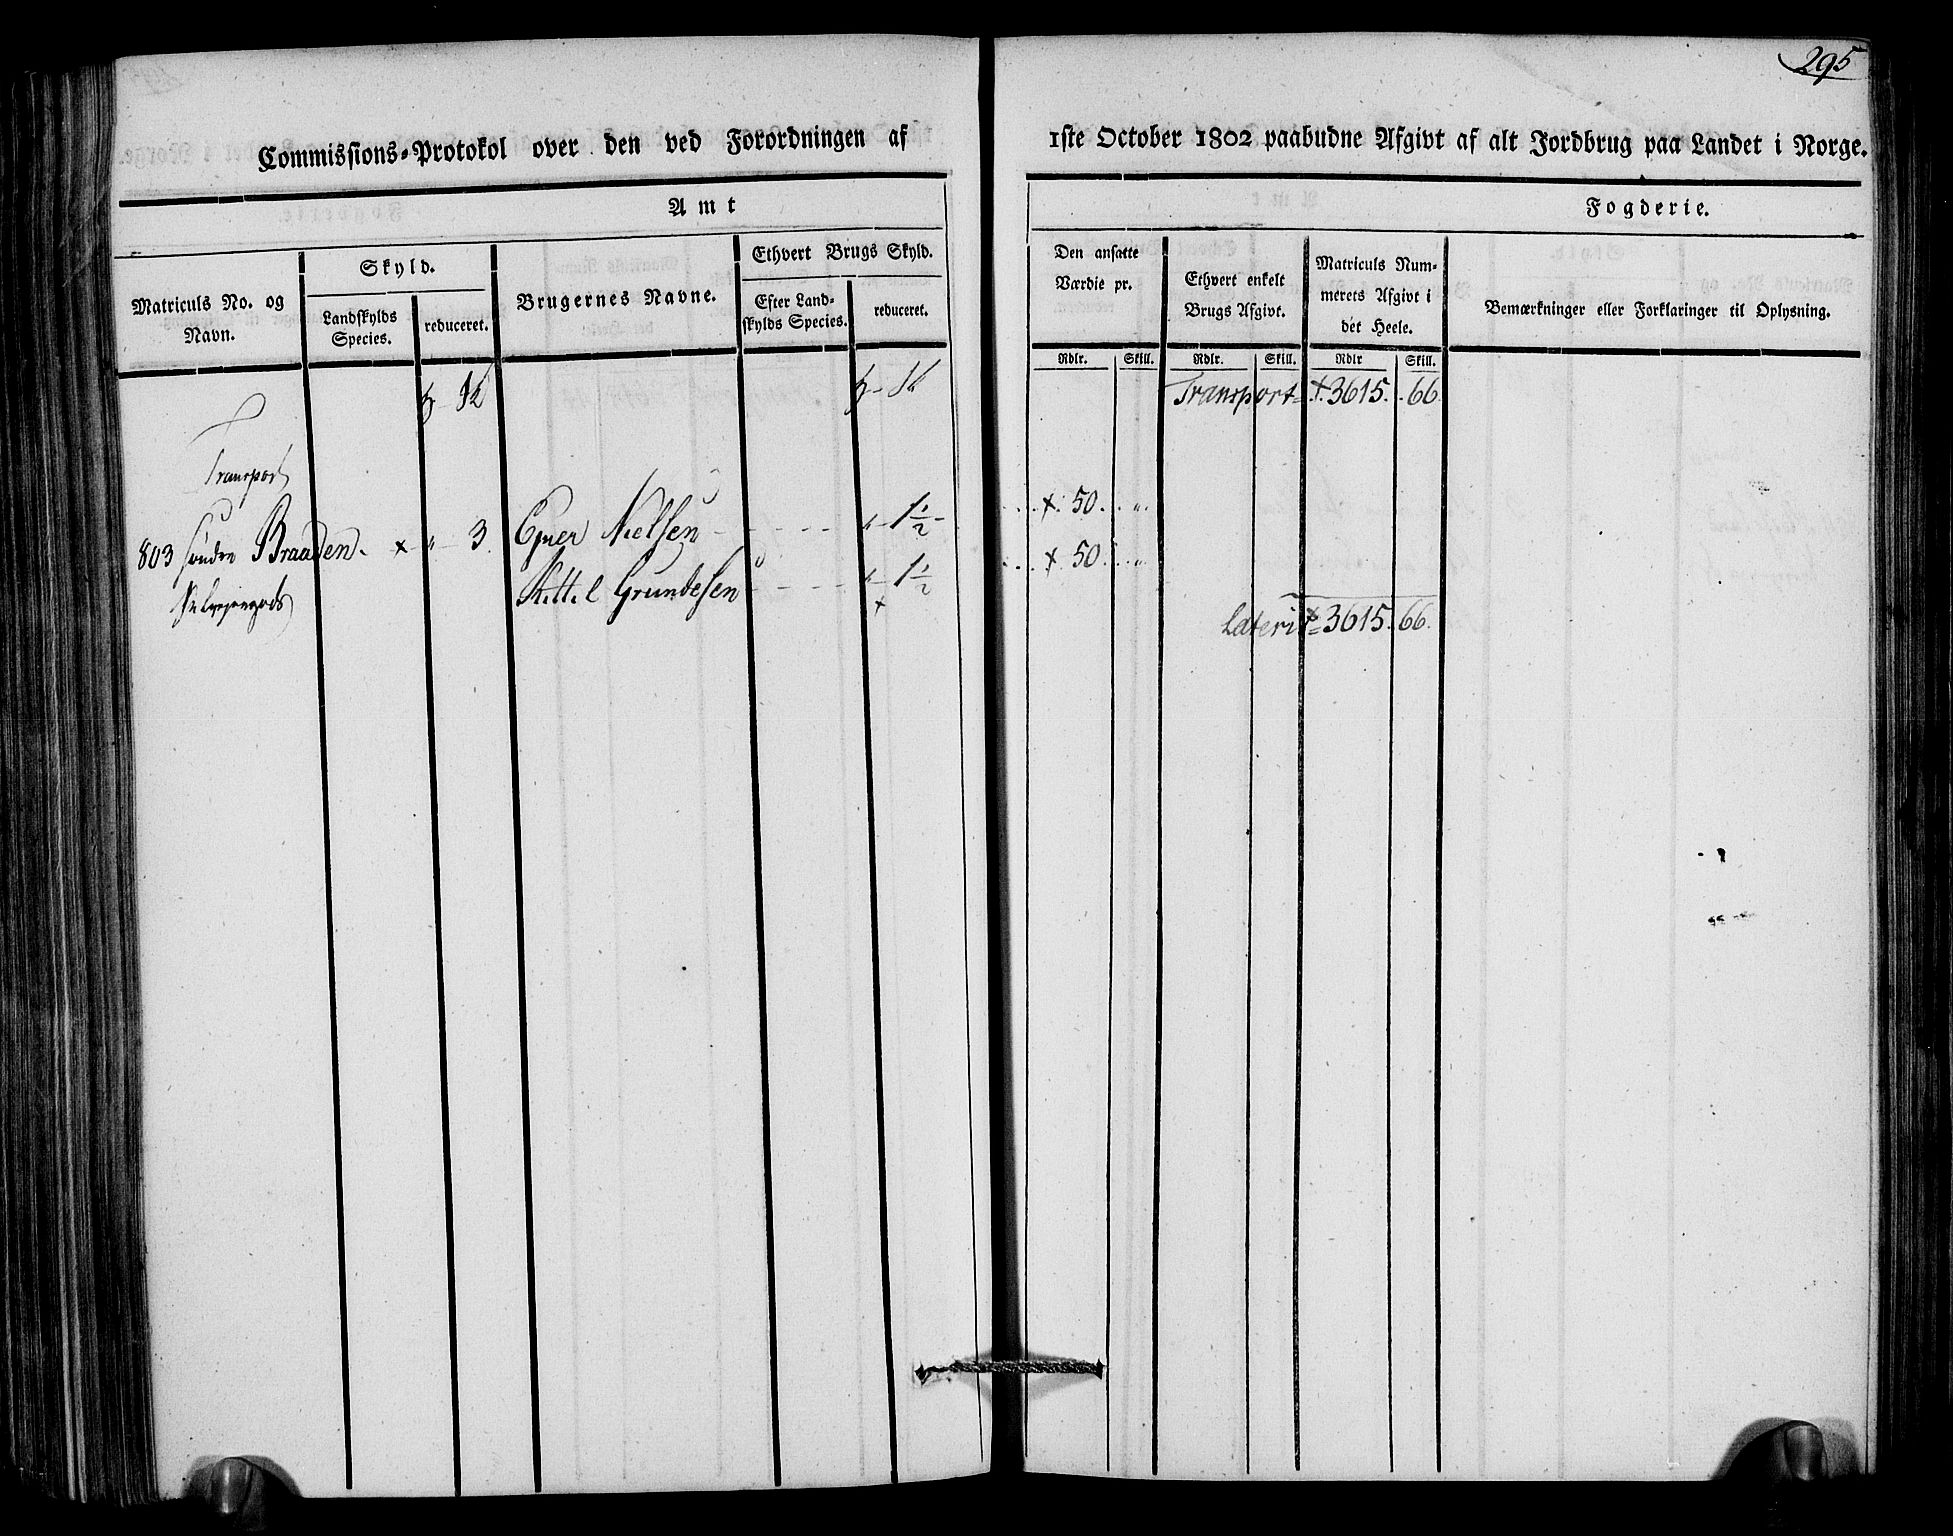 295
Commissions-Protokol over den ved Forordningen af 1ste October 1802 paabudne Afgivt af alt Jordbrug paa Landet i Norge.
Amt Fogderie.
Matriculs No. og Navn.
Skyld.
Landskylds Species.
reduceret.
Brugernes Navne.
Ethvert Brugs Skyld.
Efter Landskylds Species.
reduceret.
Den ansatte Værdie pr.
Ethvert enkelt Brugs Afgivt.
Matriculs Nummerets Afgivt i det Heele.
Bemærkninger eller Forklaringer til Oplysning.
Rdlr. Skill. Rdlr. Skill. Rdlr Skill.
Transport 3615. 66.
Transport
803 Søndre Braaden 3 Ejner Nielsen 1½ 50
Grundesen 1½ 50
Lateris 3615. 66.